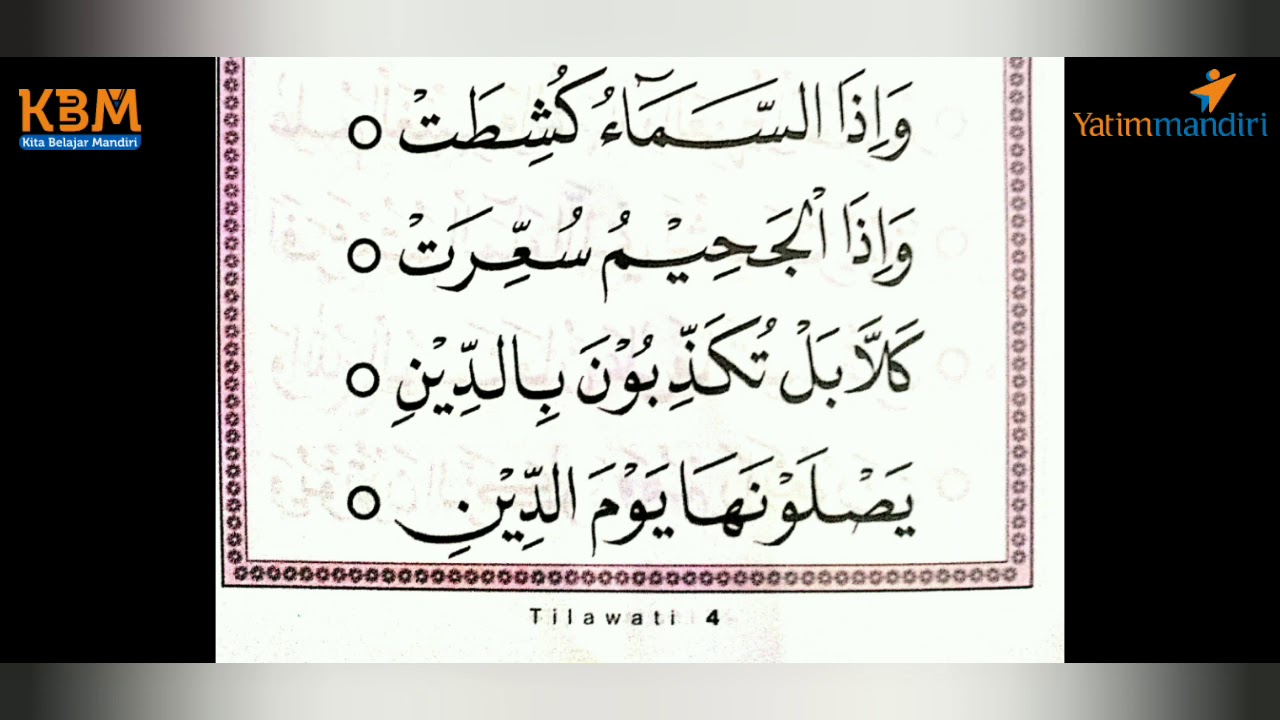 KBM
Kita Belajar Mandiri
Yatimmandiri
وَاِذَا السَّمَآءُ كُشِطَتْ ○
وَاِذَا الْجَحِيْمُ سُعِّرَتْ ○
كَلَّا بَلْ تُكَذِّبُوْنَ بِالدِّيْنِ ○
يَصْلَوْنَهَا يَوْمَ الدِّيْنِ ○
Tilawati 4